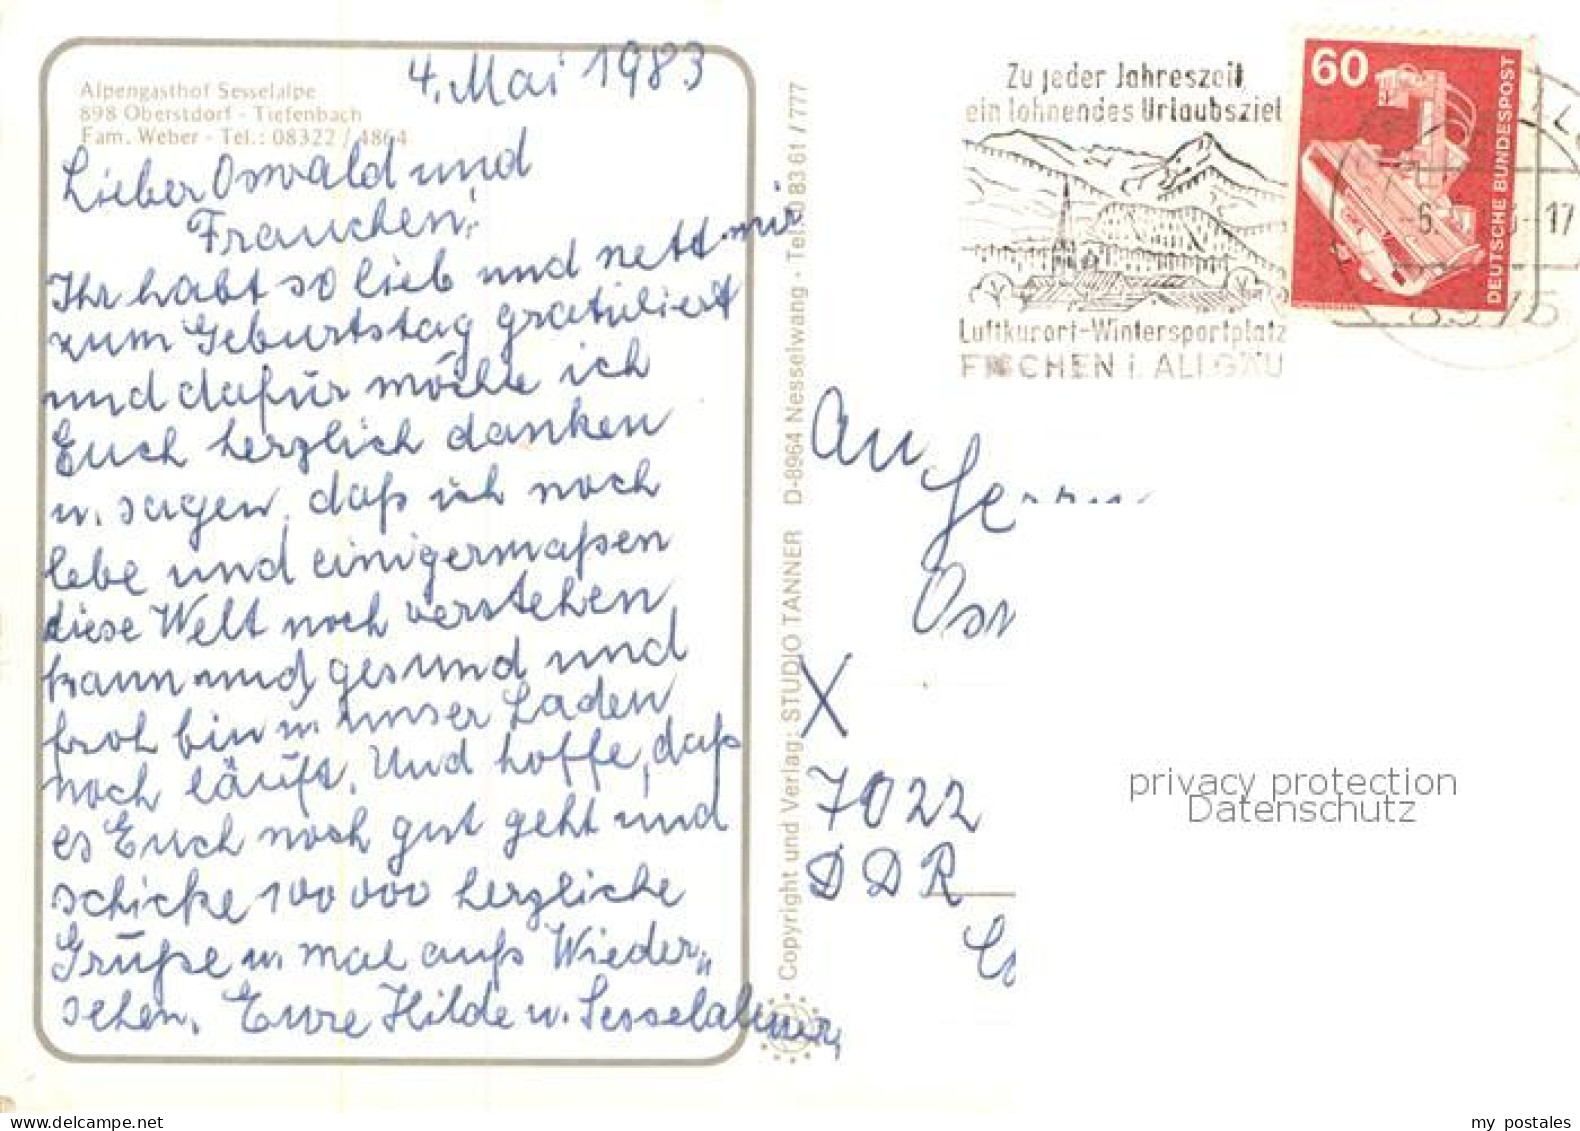 Alpengasthof Sesselalpe
898 Oberstdorf - Tiefenbach
Fam. Weber - Tel.: 08322 / 4864
4. Mai 1983
Lieber Oswald und
Frauchen!
Ihr habt so lieb und nett mir
zum Geburtstag gratuliert
und dafür möchte ich
Euch herzlich danken
u. sagen, daß ich noch
lebe und einigermaßen
diese Welt noch verstehen
kann und gesund und
froh bin u. unser Laden
noch läuft. Und hoffe, daß
es Euch noch gut geht und
schicke 100 000 herzliche
Grüße u. mal aufs Wieder„
sehen. Eure Hilde u. Sesselalmer
Copyright und Verlag: STUDIO TANNER D-8964 Nesselwang - Tel. 0 83 61 / 777
Zu jeder Jahreszeit
ein lohnendes Urlaubsziel
Luftkurort-Wintersportplatz
FISCHEN i. ALLGÄU
60
DEUTSCHE BUNDESPOST
-17
8975
An
7022
DDR
privacy protection
Datenschutz
my postales